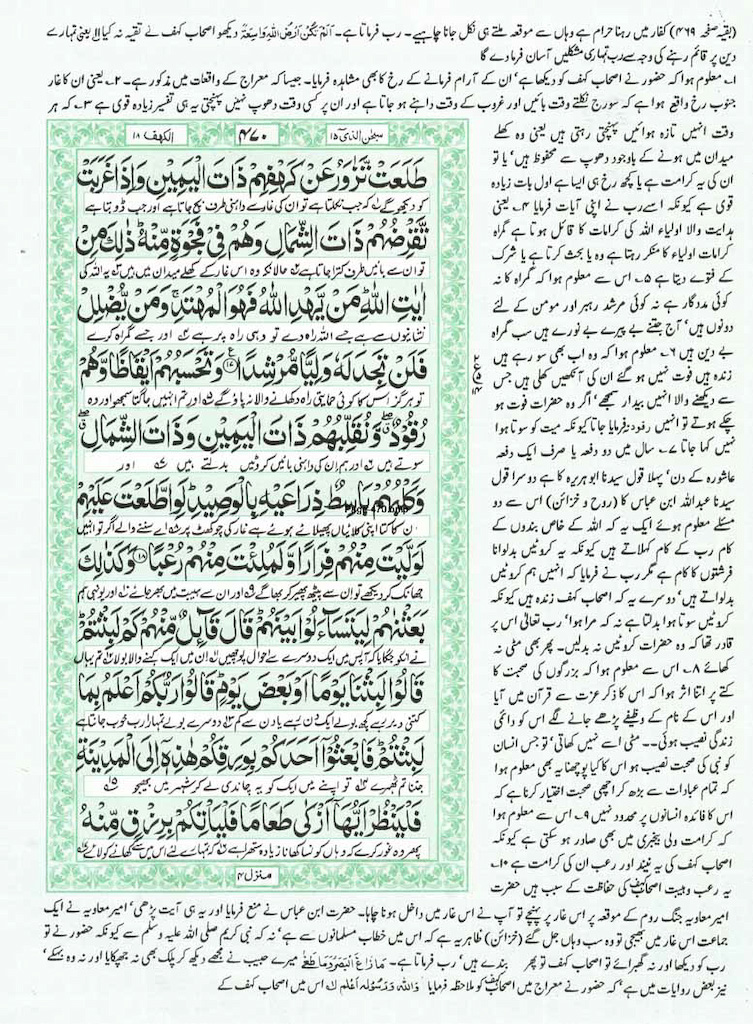 (بقیہ صفحہ ۴۶۹) کفار میں رہنا حرام ہے وہاں سے موقعہ ملتے ہی نکل جانا چاہیے۔ رب فرماتا ہے۔ اَلَمْ تَكُنْ اَرْضُ اللّٰهِ وَاسِعَةً دیکھو اصحاب کہف نے تقیہ نہ کیا یعنی تمہارے
دین پر قائم رہنے کی وجہ سے رب تمہاری مشکلیں آسان فرما دے گا
۱۔ معلوم ہوا کہ حضور نے اصحاب کہف کو دیکھا ہے' ان کے آرام فرمانے کے رخ کا بھی مشاہدہ فرمایا۔ جیسا کہ معراج کے واقعات میں مذکور ہے۔ ۲۔ یعنی ان کا غار
جنوب رخ واقع ہوا ہے کہ سورج نکلتے وقت بائیں اور غروب کے وقت داہنے ہو جاتا ہے اور ان پر کسی وقت دھوپ نہیں پہنچتی یہ ہی تفسیر زیادہ قوی ہے ۳۔ کہ ہر
وقت انہیں تازہ ہوائیں پہنچتی رہتی ہیں یعنی وہ کھلے
میدان میں ہونے کے باوجود دھوپ سے محفوظ ہیں' یا تو
ان کی یہ کرامت ہے یا کچھ رخ ہی ایسا ہے اول بات زیادہ
قوی ہے کیونکہ اسے رب نے اپنی آیات فرمایا ۴۔ یعنی
ہدایت والا اولیاء اللہ کی کرامات کا قائل ہوتا ہے گمراہ
کرامات اولیاء کا منکر رہتا ہے وہ یا بحث کرتا ہے یا شرک
کے فتوے دیتا ہے ۵۔ اس سے معلوم ہوا کہ گمراہ کا نہ
کوئی مددگار ہے نہ کوئی مرشد رہبر اور مومن کے لئے
دونوں ہیں' آج جتنے بے پیرے بے نورے ہیں سب گمراہ
بے دین ہیں ۶۔ معلوم ہوا کہ وہ اب بھی سو رہے ہیں
زندہ ہیں فوت نہیں ہو گئے ان کی آنکھیں کھلی ہیں جس
سے دیکھنے والا انہیں بیدار سمجھے' اگر وہ حضرات فوت ہو
چکے ہوتے تو انہیں رقود نہ فرمایا جاتا کیونکہ میت کو سوتا ہوا
نہیں کہا جاتا ۷۔ سال میں دو دفعہ یا صرف ایک دفعہ
عاشورہ کے دن' پہلا قول سیدنا ابو ہریرہ کا ہے دوسرا قول
سیدنا عبداللہ ابن عباس کا (روح و خزائن) اس سے دو
مسئلے معلوم ہوئے ایک یہ کہ اللہ کے خاص بندوں کے
کام رب کے کام کہلاتے ہیں کیونکہ یہ کروٹیں بدلوانا
فرشتوں کا کام ہے مگر رب نے فرمایا کہ انہیں ہم کروٹیں
بدلواتے ہیں' دوسرے یہ کہ اصحاب کہف زندہ ہیں کیونکہ
کروٹیں سوتا ہوا بدلتا ہے نہ کہ مرا ہوا' رب تعالیٰ اس پر
قادر تھا کہ وہ حضرات کروٹیں نہ بدلیں۔ پھر بھی مٹی نہ
کھائے ۸۔ اس سے معلوم ہوا کہ بزرگوں کی صحبت کا
کتے پر اتنا اثر ہوا کہ اس کا ذکر عزت سے قرآن میں آیا
اور اس کے نام کے وظیفے پڑھے جانے لگے اس کو دائمی
زندگی نصیب ہوئی۔۔ مٹی اسے نہیں کھاتی' تو جس انسان
کو نبی کی صحبت نصیب ہو اس کا کیا پوچھنا یہ بھی معلوم ہوا
کہ تمام عبادات سے بڑھ کر اچھی صحبت اختیار کرنا ہے کہ
اس کا فائدہ انسانوں پر محدود نہیں ۹۔ اس سے معلوم ہوا
کہ کرامت ولی بیخبری میں بھی صادر ہو سکتی ہے کیونکہ
اصحاب کہف کی یہ نیند اور رعب ان کی کرامت ہے ۱۰۔
یہ رعب و ہیبت اصحاب کہف کی حفاظت کے سبب ہیں حضرت
سبحٰن الذی ۱۵ ۴۷۰ الکہف ۱۸
طَلَعَتْ تَّزٰوَرُ عَنْ كَهْفِهِمْ ذَاتَ الْيَمِيْنِ وَاِذَا غَرَبَتْ
کو دیکھو گے کہ جب نکلتا ہے تو ان کی غار سے داہنی طرف بچ جاتا ہے اور جب ڈوبتا ہے
تَّقْرِضُهُمْ ذَاتَ الشِّمَالِ وَهُمْ فِيْ فَجْوَةٍ مِّنْهُ ذٰلِكَ مِنْ
تو ان سے بائیں طرف کترا جاتا ہے حالانکہ وہ اس غار کے کھلے میدان میں ہیں یہ اللہ کی
اٰيٰتِ اللّٰهِ مَنْ يَّهْدِ اللّٰهُ فَهُوَ الْمُهْتَدِ وَمَنْ يُّضْلِلْ
نشانیوں سے ہے جسے اللہ راہ دے تو وہی راہ پر ہے اور جسے گمراہ کرے
فَلَنْ تَجِدَ لَهٗ وَلِيًّا مُّرْشِدًا ۱۷ وَتَحْسَبُهُمْ اَيْقَاظًا وَّهُمْ
تو ہرگز اس کا کوئی حمایتی راہ دکھانے والا نہ پاؤ گے اور تم انہیں جاگتا سمجھو اور وہ
رُقُوْدٌ وَّنُقَلِّبُهُمْ ذَاتَ الْيَمِيْنِ وَذَاتَ الشِّمَالِ
سوتے ہیں اور ہم ان کی داہنی بائیں کروٹیں بدلتے ہیں اور
وَكَلْبُهُمْ بَاسِطٌ ذِرَاعَيْهِ بِالْوَصِيْدِ لَوِ اطَّلَعْتَ عَلَيْهِمْ
ان کا کتا اپنی کلائیاں پھیلائے ہوئے ہے غار کی چوکھٹ پر اے سننے والے اگر تو انہیں
لَوَلَّيْتَ مِنْهُمْ فِرَارًا وَّلَمُلِئْتَ مِنْهُمْ رُعْبًا ۱۸ وَكَذٰلِكَ
جھانک کر دیکھے تو ان سے پیٹھ پھیر کر بھاگے اور ان سے ہیبت میں بھر جائے اور یونہی ہم
بَعَثْنٰهُمْ لِيَتَسَآءَلُوْا بَيْنَهُمْ قَالَ قَآئِلٌ مِّنْهُمْ كَمْ لَبِثْتُمْ
نے انکو جگایا کہ آپس میں ایک دوسرے سے احوال پوچھیں ان میں ایک کہنے والا بولا تم یہاں
قَالُوْا لَبِثْنَا يَوْمًا اَوْ بَعْضَ يَوْمٍ قَالُوْا رَبُّكُمْ اَعْلَمُ بِمَا
کتنی دیر رہے کچھ بولے ایک دن رہے یا دن سے کم دوسرے بولے تمہارا رب خوب جانتا ہے
لَبِثْتُمْ فَابْعَثُوْٓا اَحَدَكُمْ بِوَرِقِكُمْ هٰذِهٖٓ اِلَى الْمَدِيْنَةِ
جتنا تم ٹھہرے تو اپنے میں ایک کو یہ چاندی لے کر شہر میں بھیجو
فَلْيَنْظُرْ اَيُّهَآ اَزْكٰى طَعَامًا فَلْيَاْتِكُمْ بِرِزْقٍ مِّنْهُ
پھر وہ غور کرے کہ وہاں کونسا کھانا زیادہ ستھرا ہے کہ تمہارے لئے اس میں سے کھانے کو لائے
منزل ۴
امیر معاویہ جنگ روم کے موقعہ پر اس غار پر پہنچے تو آپ نے اس غار میں داخل ہونا چاہا۔ حضرت ابن عباس نے منع فرمایا اور یہ ہی آیت پڑھی' امیر معاویہ نے ایک
جماعت اس غار میں بھیجی تو وہ سب وہاں جل گئے (خزائن) ظاہر یہ ہے کہ اس میں خطاب مسلمانوں سے ہے' نہ کہ نبی کریم صلی اللہ علیہ وسلم سے کیونکہ حضور نے تو
رب کو دیکھا اور نہ گھبرائے تو اصحاب کہف تو پھر بندے ہیں' رب فرماتا ہے۔ مَا زَاغَ الْبَصَرُ وَمَا طَغٰى میرے حبیب نے مجھے دیکھ کر پلک بھی نہ جھپکایا اور نہ بہکے'
نیز بعض روایات میں ہے' کہ حضور نے معراج میں اصحاب کہف کو ملاحظہ فرمایا واللہ ورسولہ اعلم ک اس میں اصحاب کہف کے